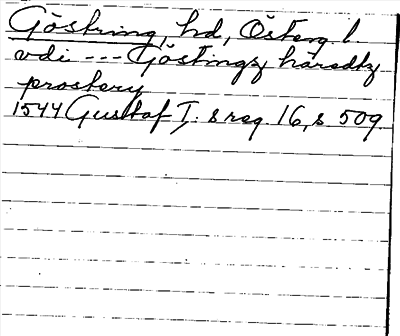 Göstring, hd, Österg l.
vdi --- Göstingz häredtz
prostery
1544 Gustaf I:s reg. 16, s 509